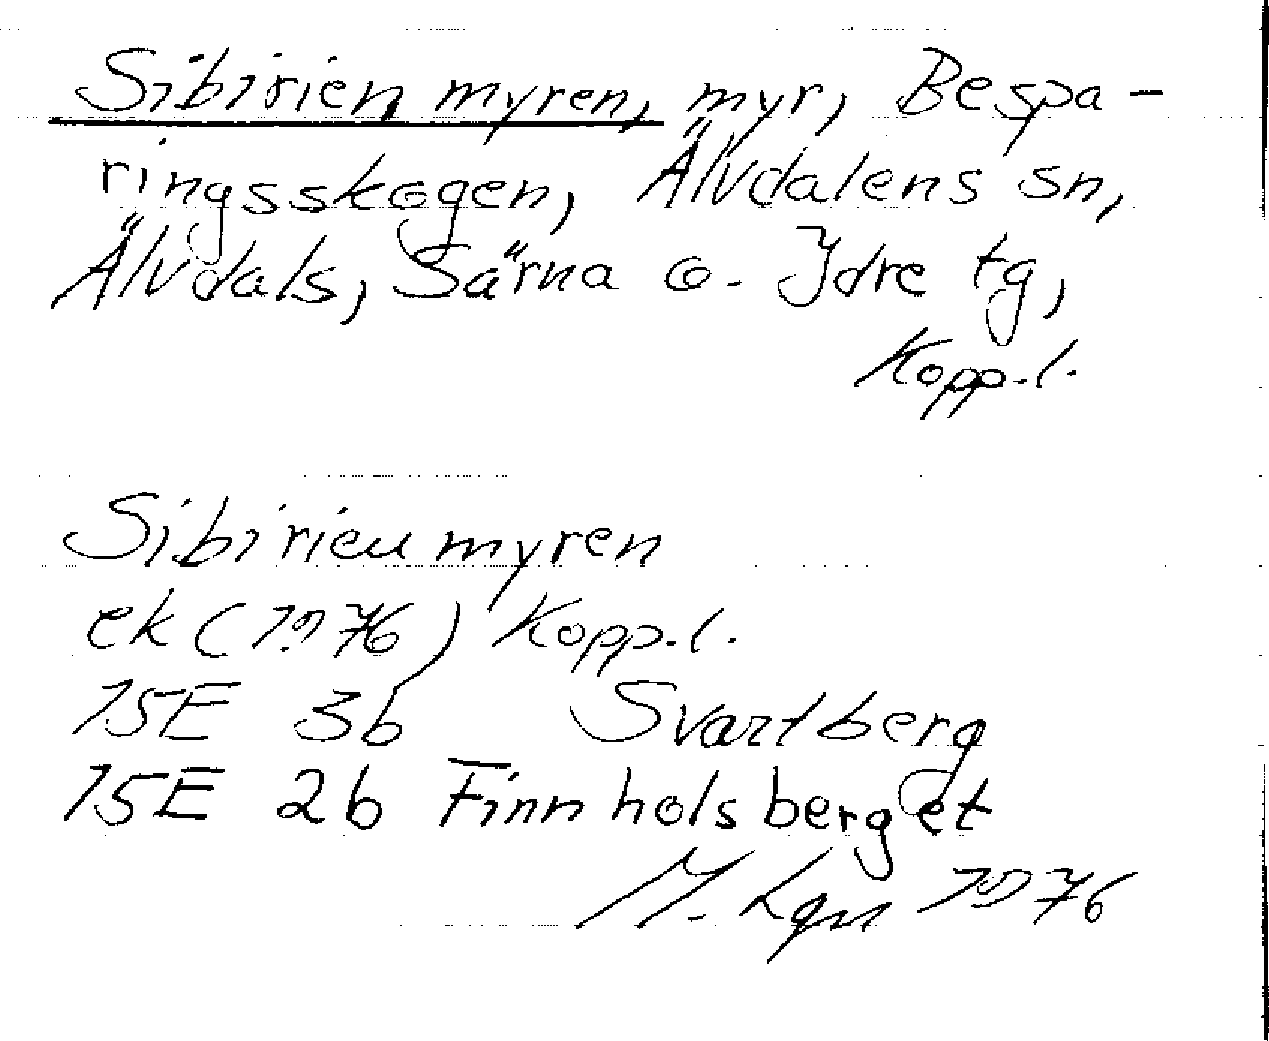 Sibirienmyren, myr, Bespa-
ringsskogen, Älvdalens sn,
Älvdals, Särna o. Idre tg,
Kopp.l.
Sibirienmyren
ek (1976) Kopp.l.
15E 3b Svartberg
15E 2b Finnholsberget
M. Lgn 1976